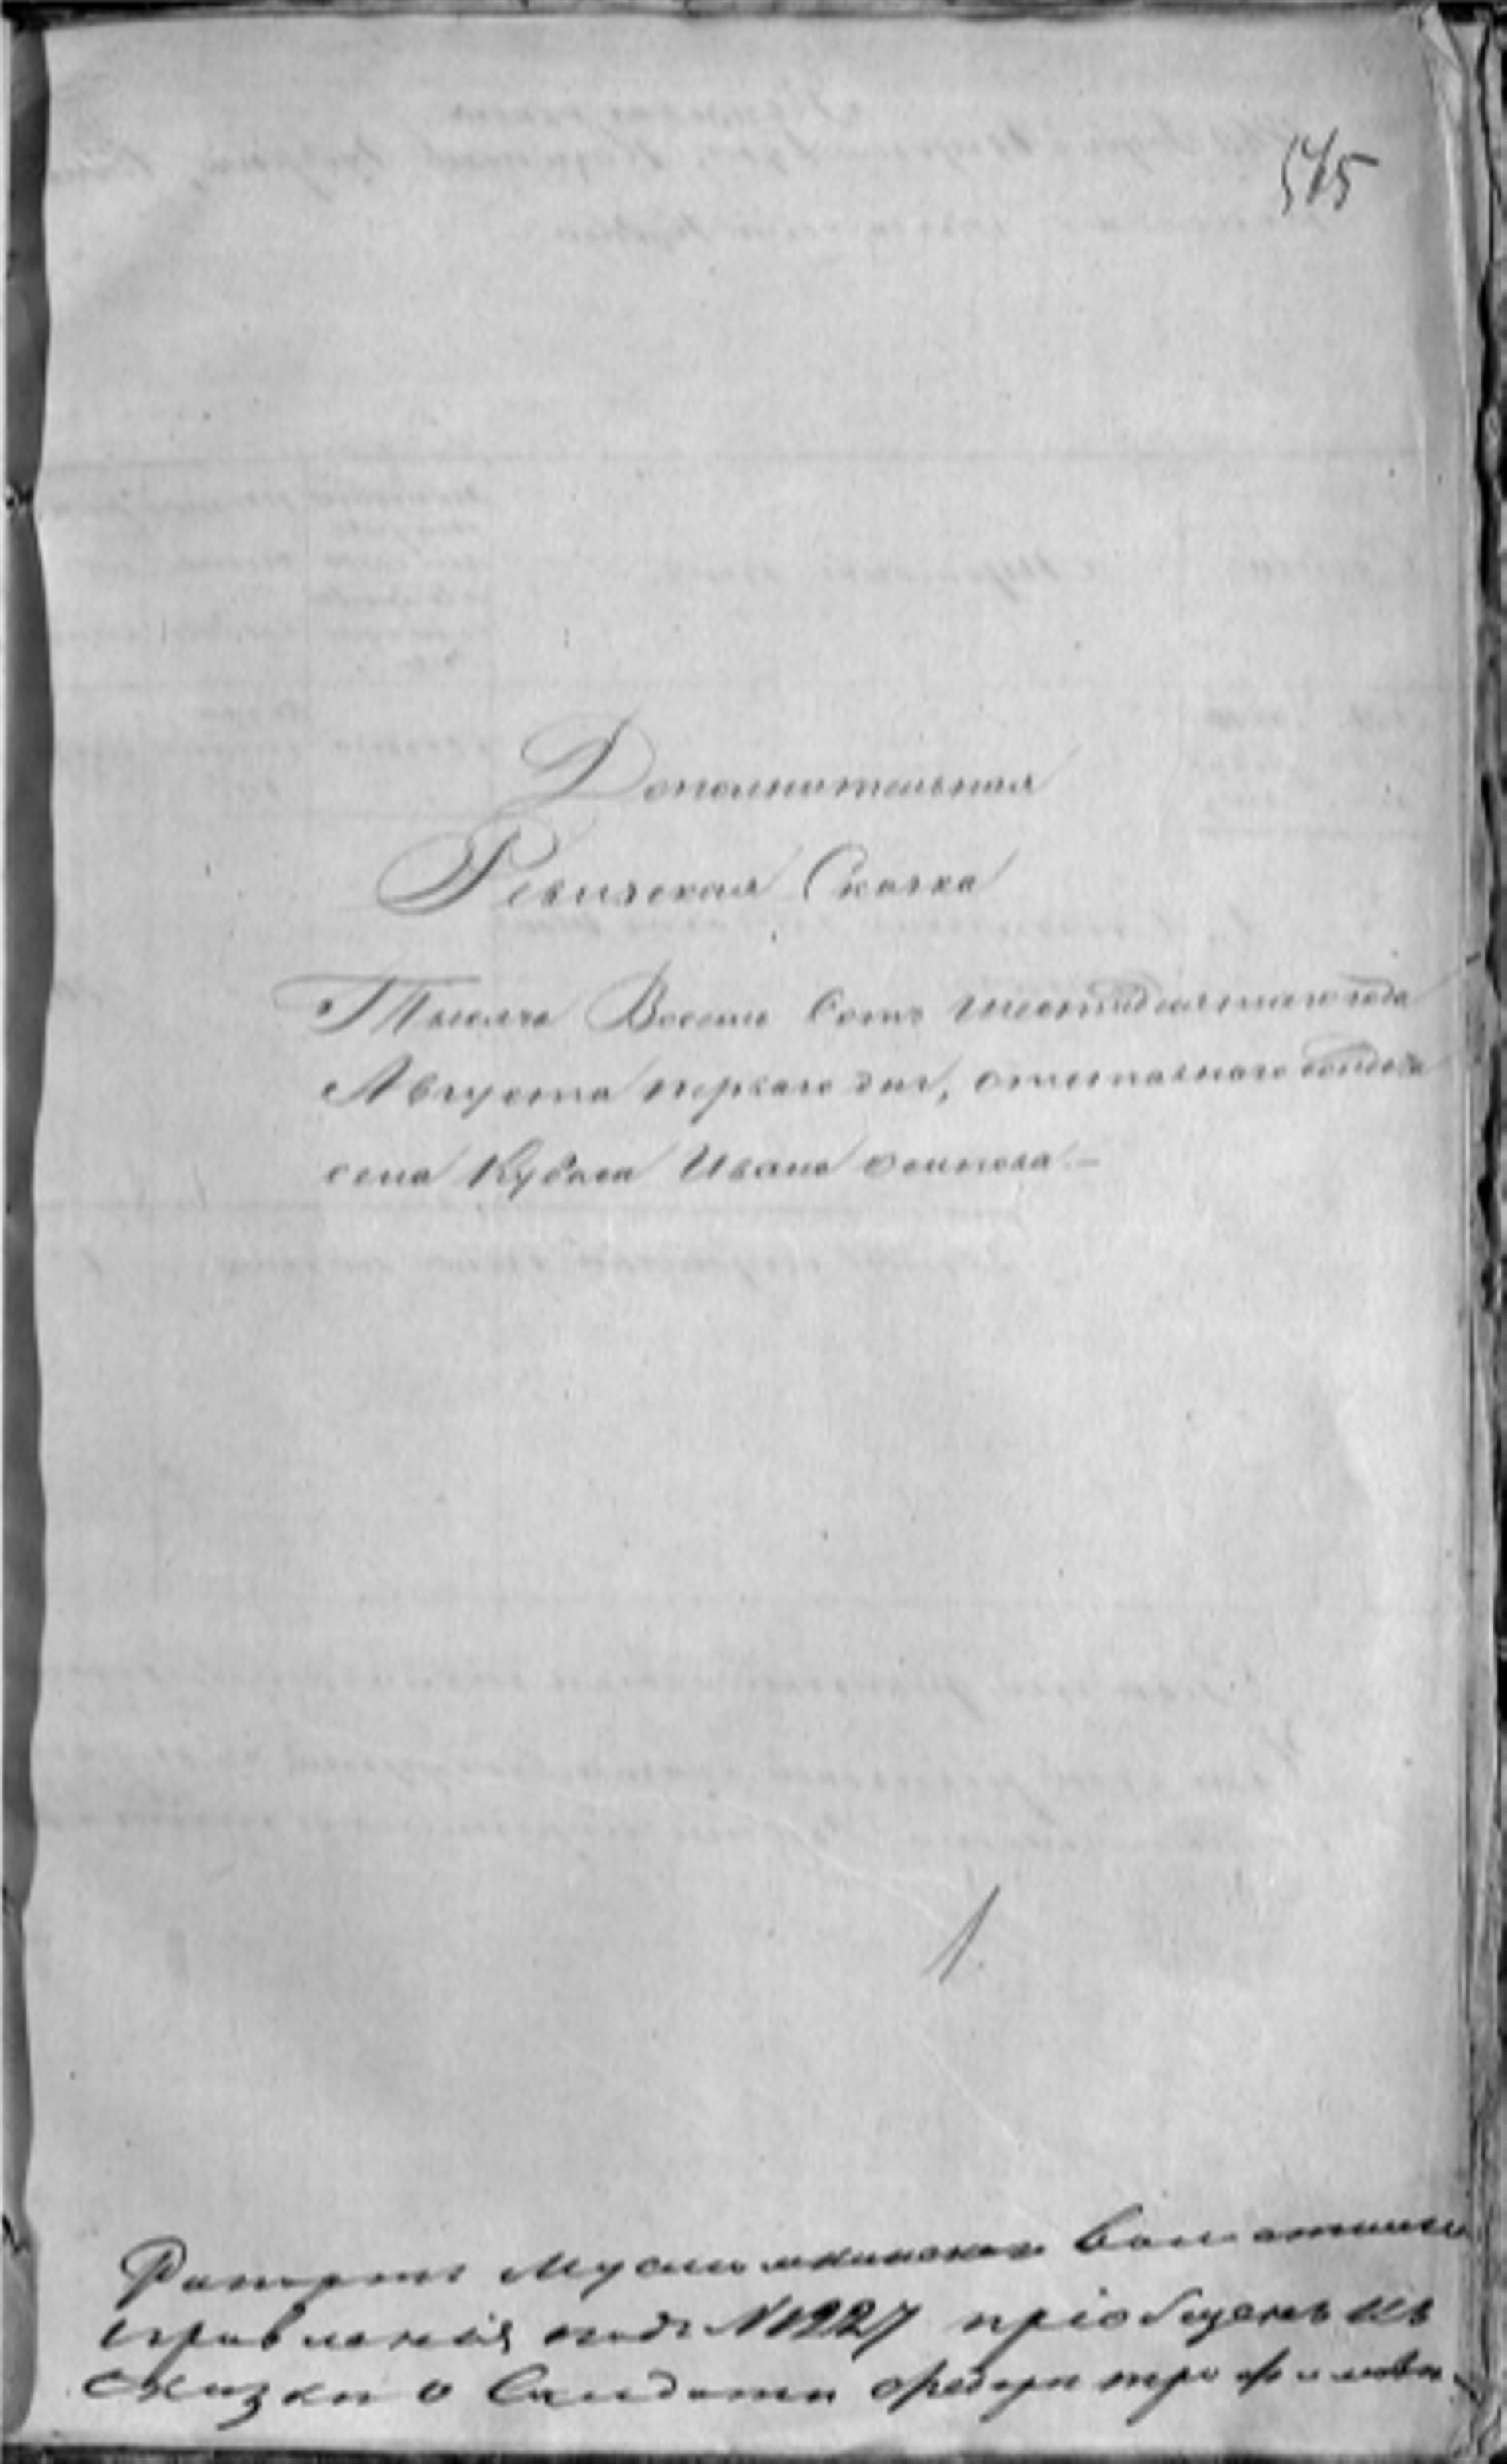 545
Дополнительная
Ревизская Сказка
Тысяча Восемь Сотъ шестидесятаго года
Августа перваго дня, отставного солдата
села Кубаса Ивана Осипова —
1.
Рапортъ Муслюмкинскаго Волостнаго
правленія подъ №1227 пріобщенъ къ
сказки о Солдати Федоръ Трофимовъ